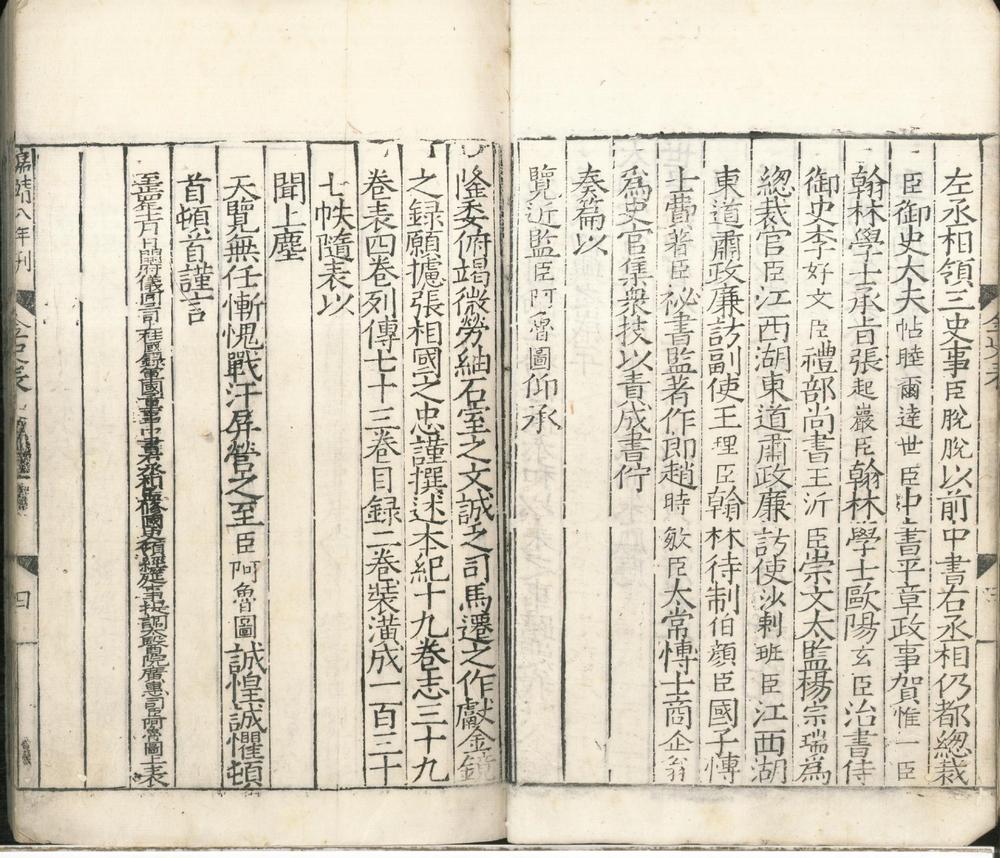 左丞相領三史事臣脫脫以前中書右丞相仍都總裁
臣御史大夫帖睦爾達世臣中書平章政事賀惟一臣
翰林學士承旨張起巖臣翰林學士歐陽玄臣治書侍
御史李好文臣禮部尚書王沂臣崇文太監楊宗瑞為
總裁官臣江西湖東道肅政廉訪使沙剌班臣江西湖
東道肅政廉訪副使王理臣翰林待制伯顏臣國子愽
士費著臣祕書監著作郎趙時敏臣太常愽士商企翁
為史官集衆技以責成書佇
奏篇以
覽近監臣阿魯圖仰承
隆委俯竭微勞紬石室之文誠乏司馬遷之作獻金鏡
之録願攄張相國之忠謹撰述本紀十九卷志三十九
卷表四卷列傳七十三卷目録二卷裝潢成一百三十
七帙隨表以
聞上塵
天覽無任慚愧戰汗屏營之至臣阿魯圖誠惶誠懼頓
首頓首謹言
至正四年十一月日開府儀同三司上柱國録軍國重事中書右丞相監修國史領經筵事提調太醫院廣惠司臣阿魯圖上表
嘉靖八年刊
金史表
四